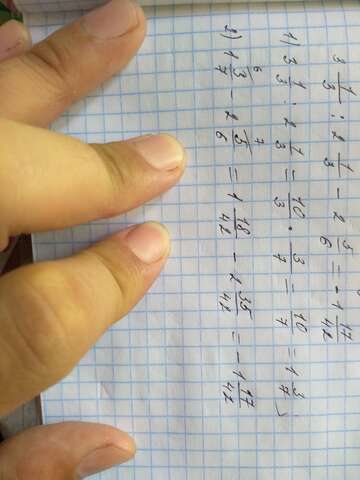 3 1/3 : 2 1/3 - 2 5/6 = -1 17/42
1) 3 1/3 : 2 1/3 = 10/3 · 3/7 = 10/7 = 1 3/7;
2) 1 3/7 ⁶ - 2 5/6 ⁷ = 1 18/42 - 2 35/42 = -1 17/42